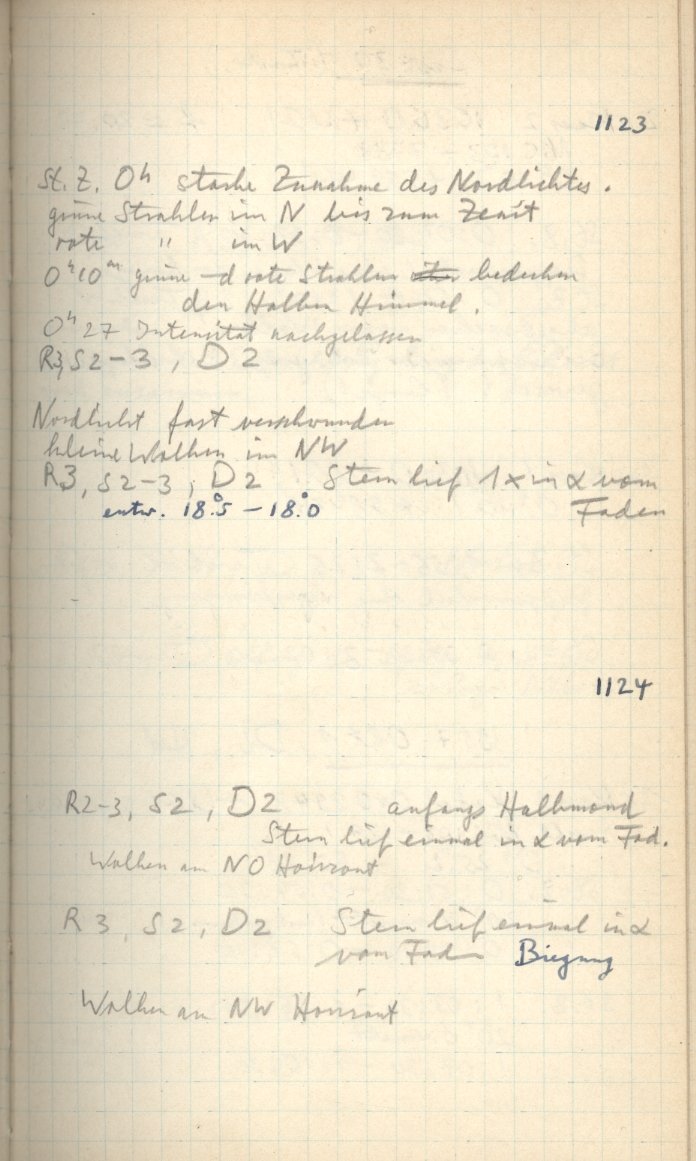 1123
St. Z. 0h starke Zunahme des Nordlichtes.
grüne Strahlen im N bis zum Zenit
rote " im W
0h10m grüne -d rote Strahlen bedecken
den Halben Himmel.
0h27 Intensität nachgelassen
R3, S2-3, D2
Nordlicht fast verschwunden
kleine Wolken im NW
R3, S2-3, D2 Stern lief 1x in α vom
Faden
entw. 18°.5 - 18°.0
1124
R2-3, S2, D2 anfangs Halbmond
Stern lief einmal in α vom Fad.
Wolken am NO Horizont
R3, S2, D2 Stern lief einmal in α
vom Fad Biegung
Wolken am NW Horizont